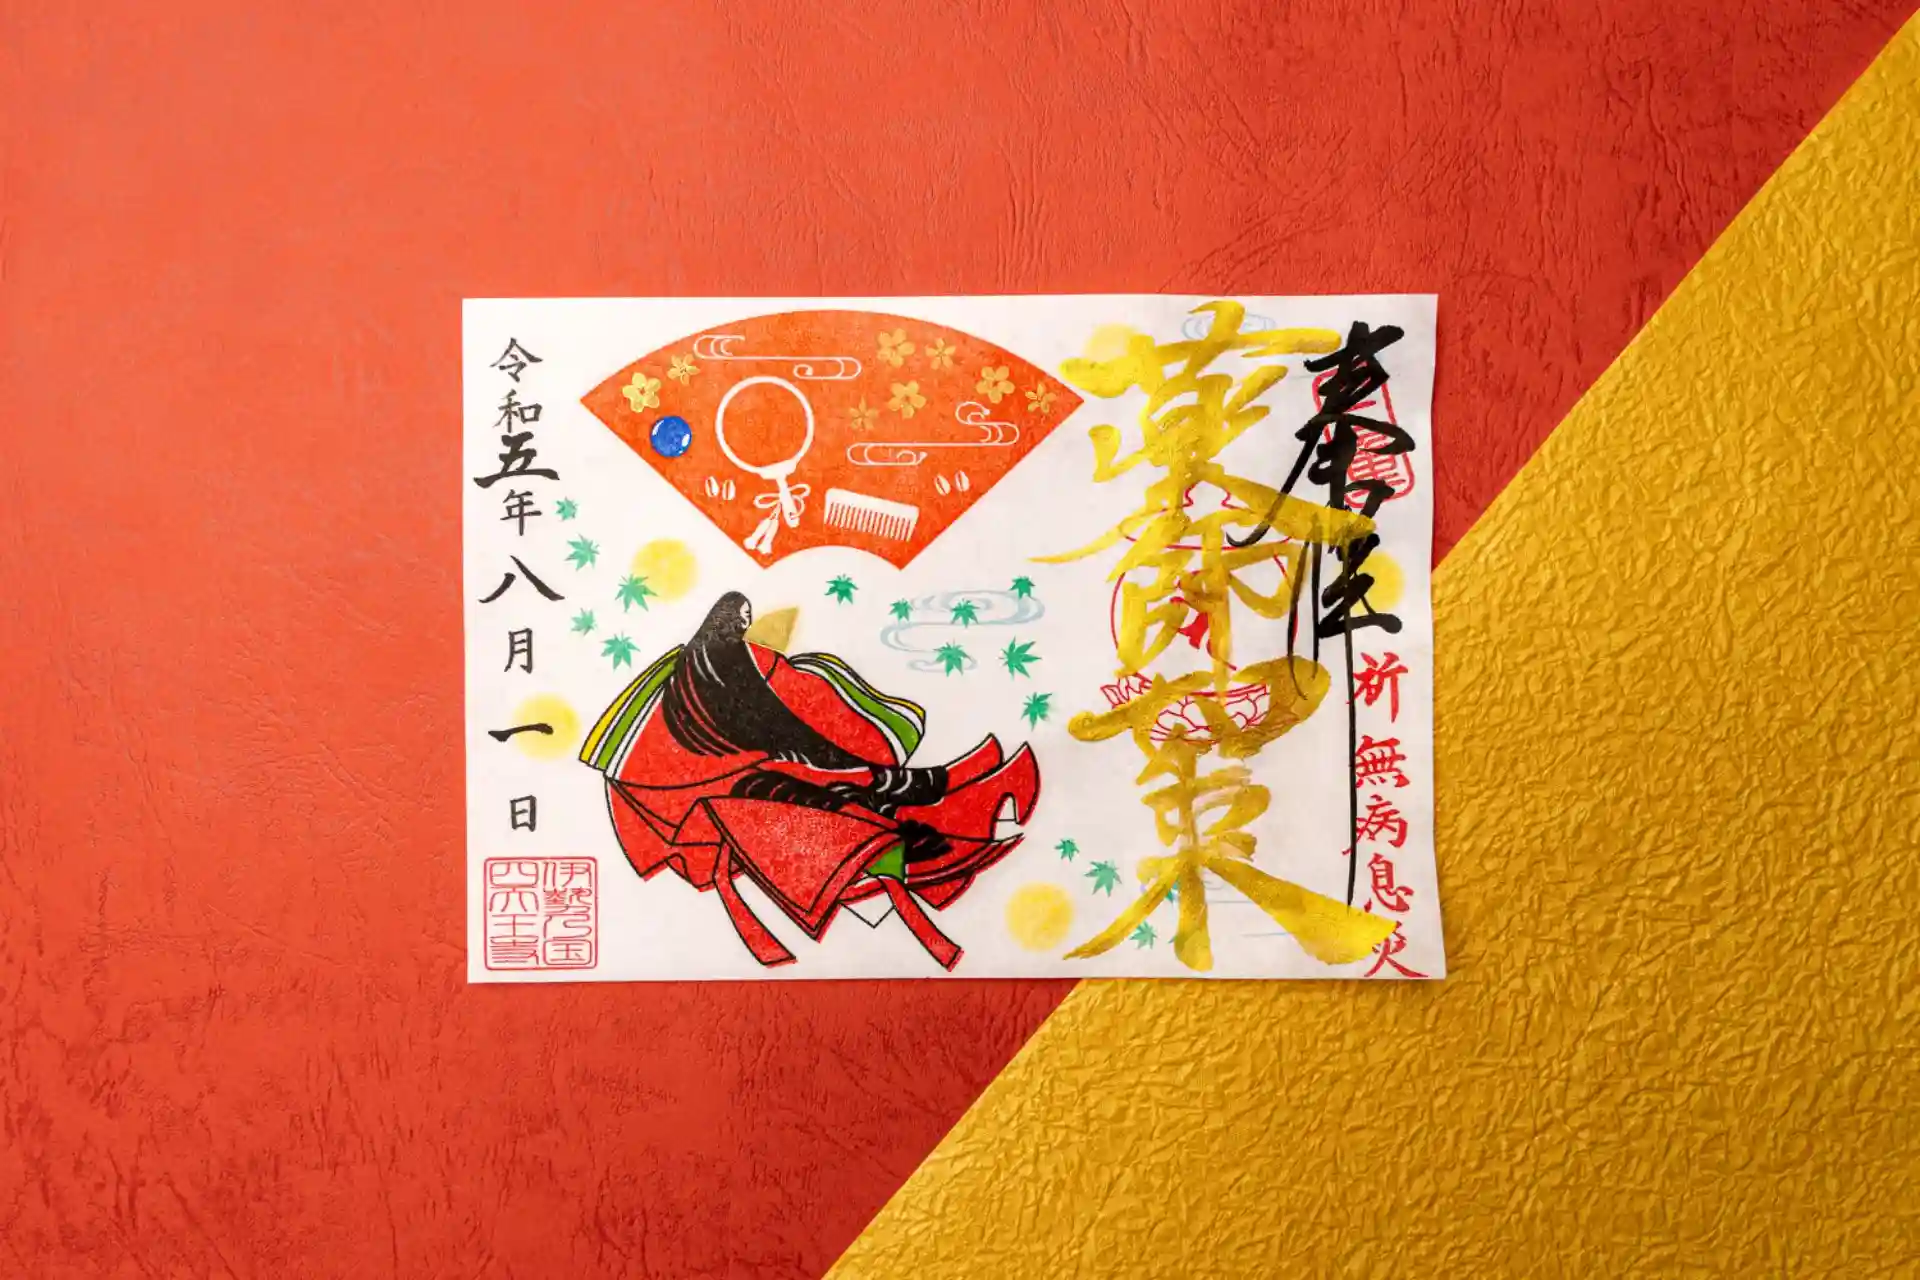 奉拝
祈 無病息災
薬師如来
令和五年八月一日
伊勢乃国
四天王寺